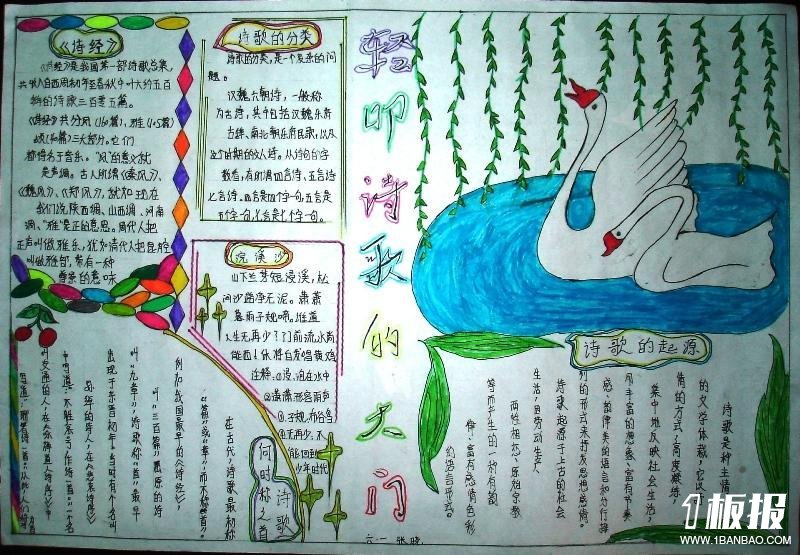 《诗经》
《诗经》是我国第一部诗歌总集,
共收入自西周初年至春秋中叶大约五百
多年的诗歌三百零五篇。
《诗经》共分风(160篇)、雅(105篇)
颂(40篇)三大部分。它们
都得名于音乐。"风"的意义就
是声调。古人所谓《秦风》、
《魏风》、《郑风》,就如现在
我们说陕西调、山西调、河南
调。"雅"是正的意思。周代人把
正声叫做雅乐,犹如清代人把昆腔
叫做雅部,带有一种
尊崇的意味
诗歌的分类
诗歌的分类,是一个复杂的问
题。
汉魏六朝诗,一般称
为古诗,其中包括汉魏乐府
古辞、南北朝乐府民歌,以及
这个时期的文人诗。从诗句的字
数看,有所谓四言诗、五言诗
七言诗。四言是四个字一句,五言是
五个字一句,七言是七个字一句。
浣溪沙
山下兰芽短浸溪,松
间沙路净无泥。萧萧
暮雨子规啼。谁道
人生无再少?门前流水尚
能西!休将白发唱黄鸡
注释:①浸:泡在水中
②潇潇:形容雨声
③子规:布谷鸟
④无再少:不
能回到
少年时代
轻叩诗歌的大门
诗歌的起源
诗歌是种主情
的文学体裁,它以
情的方式,高度凝练
集中地反映社会生活,
用丰富的想象、富有节奏
感、韵律美的语言和分行排
列的形式来抒发思想感情。
诗歌起源于上古的社会
生活,因劳动生产、
两性相恋、原始宗教
等而产生的一种有韵
律、富有感情色彩
的语言形式。
诗歌
何时称之首
在古代,诗歌最初称
"篇"或"章",而不称"首"。
例如我国最早的《诗经》,
叫"三百篇",屈原的诗
叫"九章",诗歌称"首"最早
出现于东晋初年,当时有个名叫
孙绰的诗人,在《悲哀诗序》
六一 张晓
1板报
WWW.1BANBAO.COM